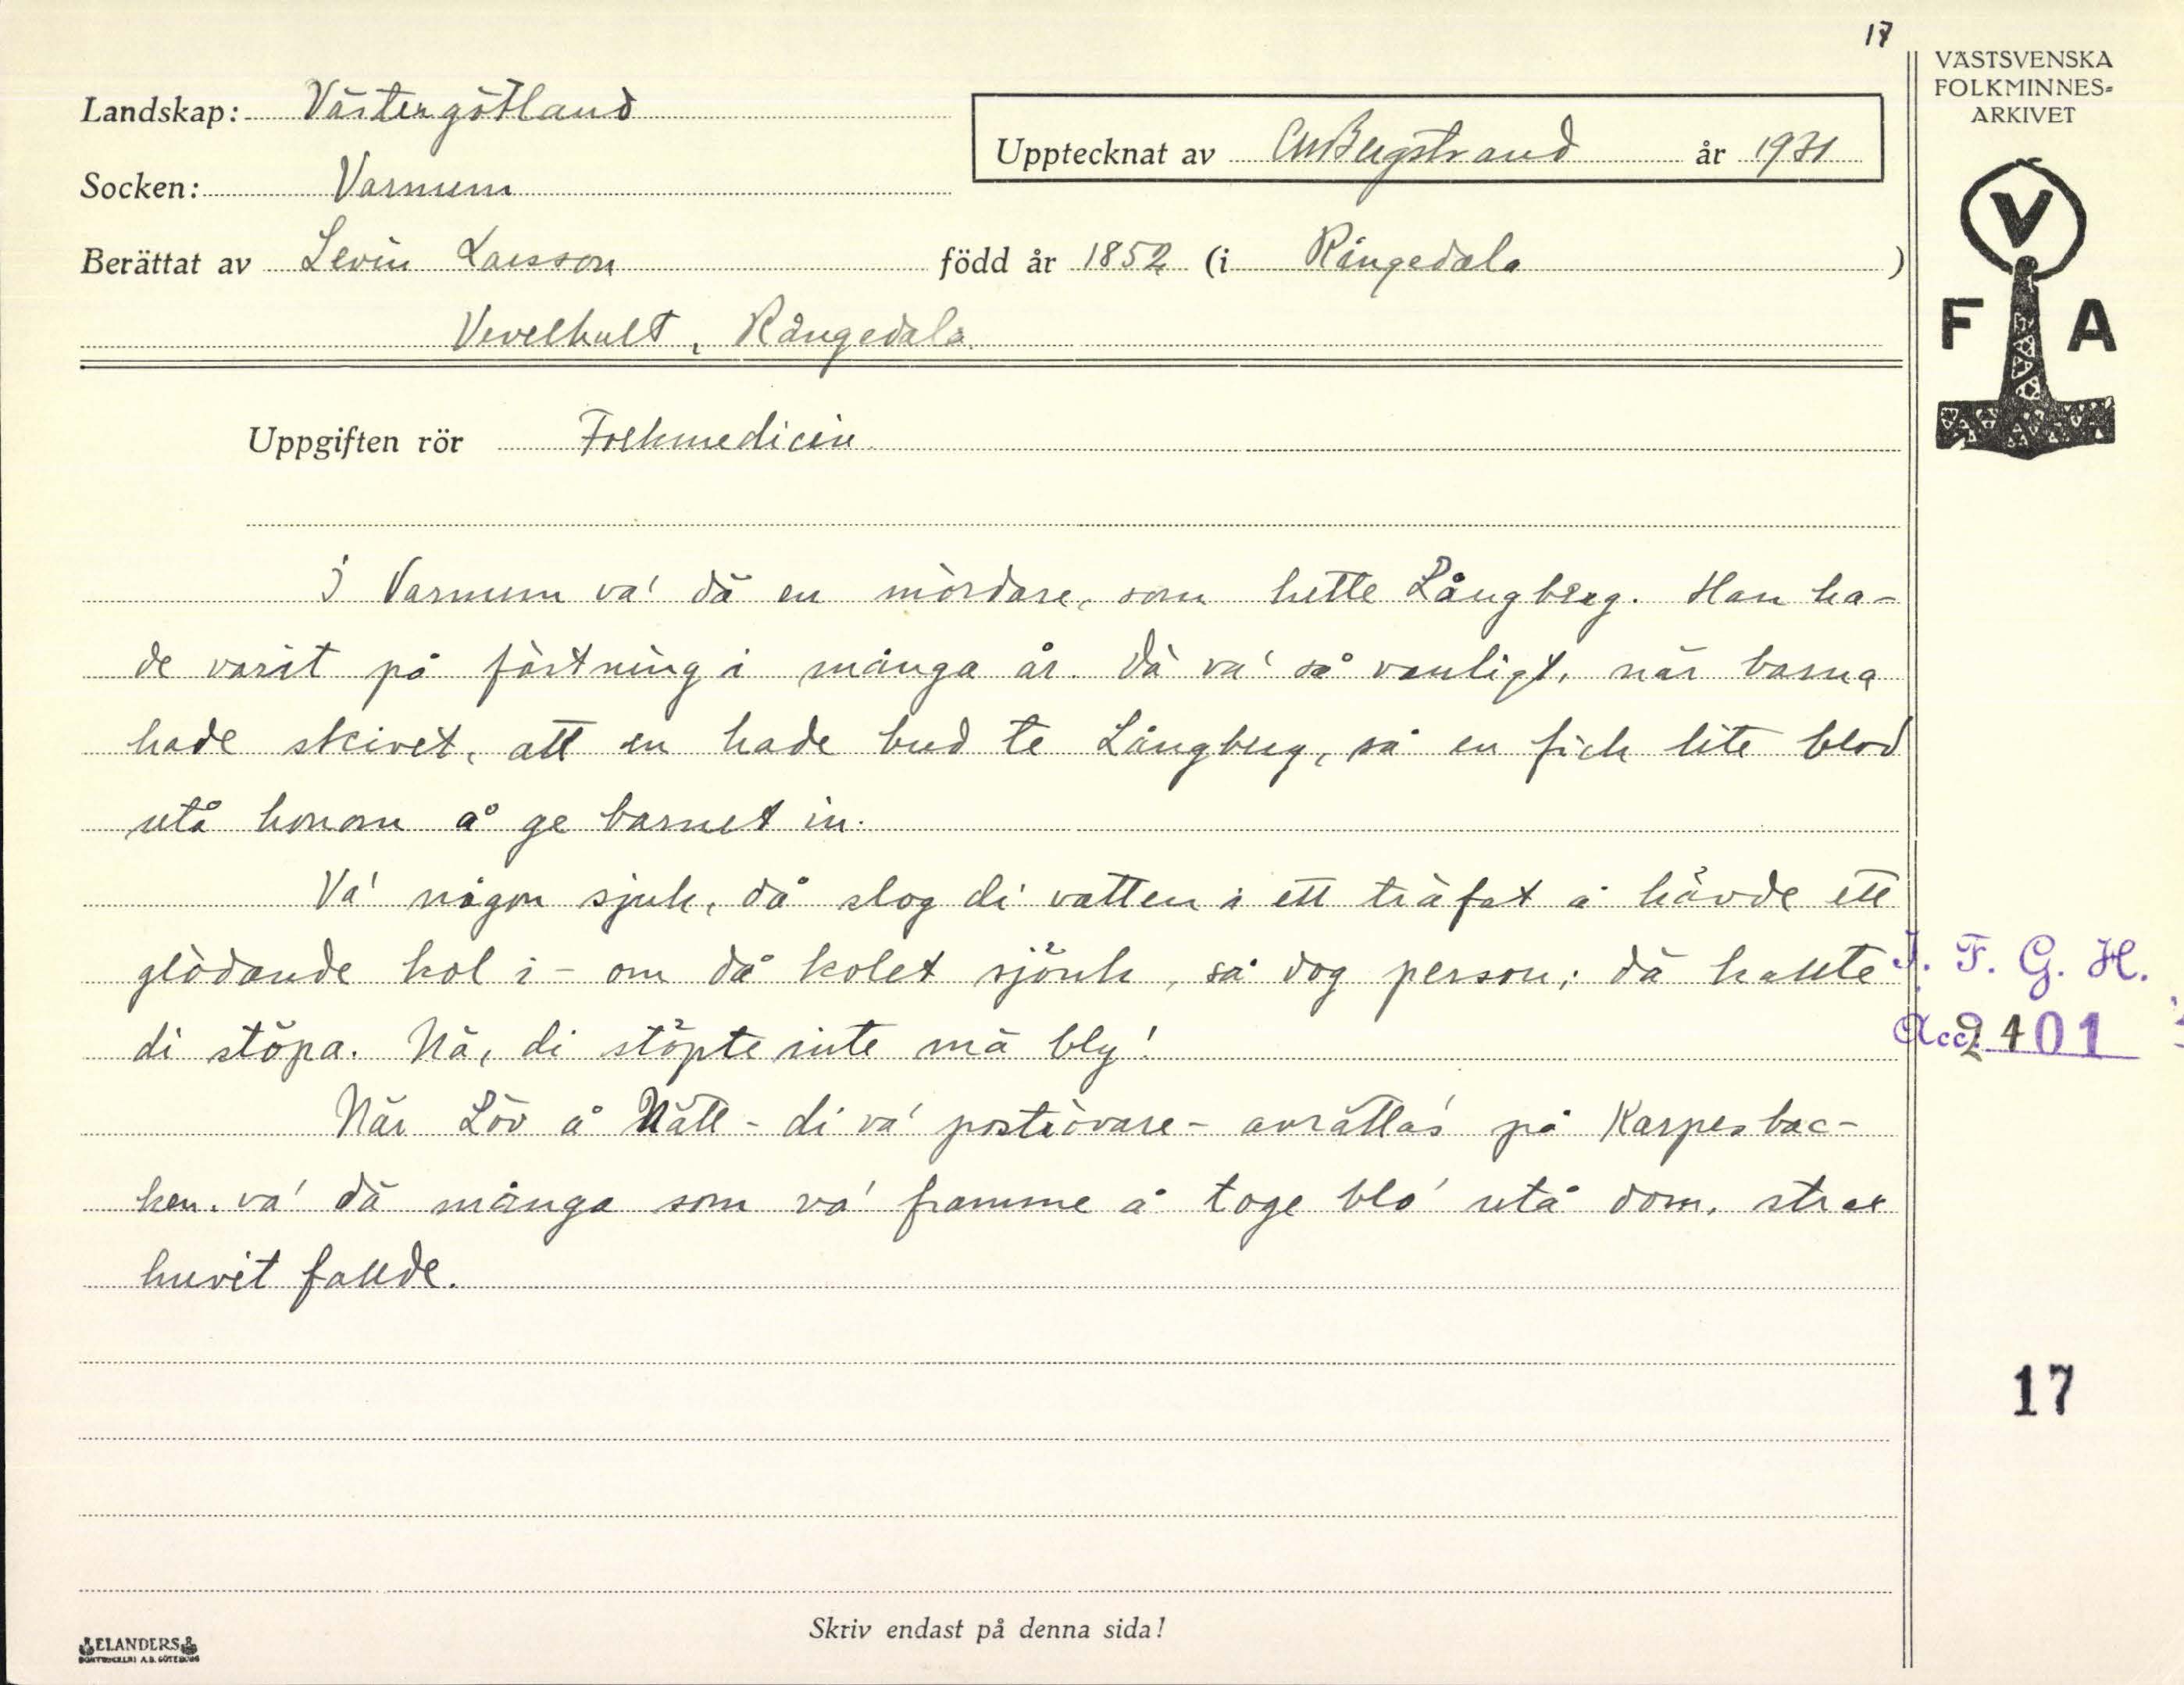 17
VÄSTSVENSKA
FOLKMINNES-
ARKIVET
Landskap: Västergötland
Upptecknat av CMBergstrand år 1931
Socken: Varnum
Berättat av Levin Larsson född år 1852 (i Rångedala)
Vevelhult, Rångedala.
V
F A
Uppgiften rör Folkmedicin
I Varnum va' dä en mördare, som hette Långberg. Han ha-
de varit på fästning i många år. Dä va' så vanligt, när barna
hade skivet, att en hade bud te Långberg, så en fick lite blod
utå honom å ge barnet in.
Va' någon sjuk, då slog di vatten i ett träfat å hävde ett
glödande kol i - om då kolet sjönk, så dog person; dä kallte
di stöpa. Nä, di stöpte inte mä bly!
När Löv å Nätt - di va' poströvare - avrättas' på Karpesbac-
ken. va' dä många som va' framme å toge blo' utå dom, strax
huvit fallde.
I. F. G. H.
Acc. 2401
17
Skriv endast på denna sida!
ELANDERS